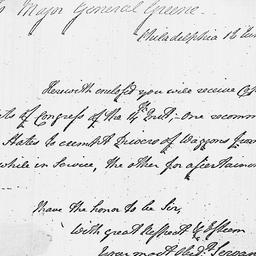 Major General Greene.
Philadelphia 18
Herewith enclosed you will receive
of Congress of the 4th Inst; one recomm
States to exempt Drivers of Waggons from
while in Service, the other for ascertaining
I have the honor to be Sir,
With great Respect & Esteem
Your most Obedt. Servan